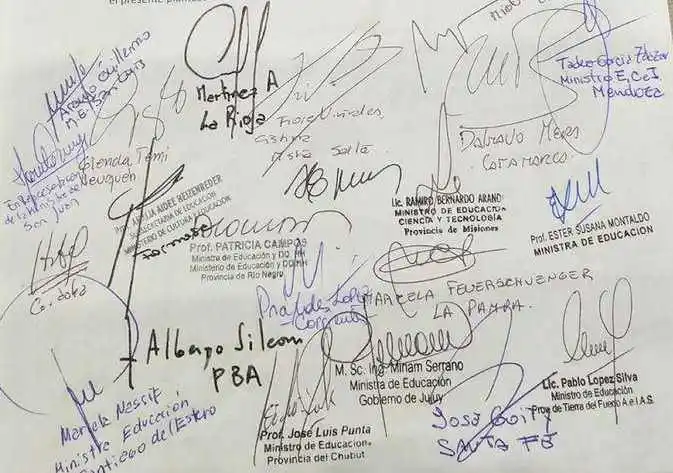 el presente
Araujo Guillermo
M.E. San Luis
Martinez A
La Rioja
Fiore Viñuales,
Cristina
Salta
Tadeo Garcia Zalazar
Ministro E, C e I
Mendoza
Dalmacio Mera
Catamarca
Glenda Temi
Neuquén
En representacion
de la Ministra de
San Juan
SECRETARIA DE EDUCACION
MINISTERIO DE CULTURA Y EDUCACION
Formosa
Lic. RAMIRO BERNARDO ARANDA
MINISTRO DE EDUCACIÓN,
CIENCIA Y TECNOLOGÍA
Provincia de Misiones
Prof. ESTER SUSANA MONTALDO
MINISTRA DE EDUCACION
Prof. PATRICIA CAMPOS
Ministra de Educación y DD.HH
Ministerio de Educación y DD.HH
Provincia de Río Negro
Cordoba
Práxedes Lopez
Corrientes
MARCELA FEUERSCHVENGER
LA PAMPA.
Alberto Sileoni
PBA
M. Sc. Ing. Miriam Serrano
Ministra de Educación
Gobierno de Jujuy
Lic. Pablo Lopez Silva
Ministro de Educación
Prov. de Tierra del Fuego A.e I.A.S.
Mariela Nassif
Ministra Educación
Santiago del Estero
Prof. José Luis Punta
Ministro de Educación
Provincia del Chubut
José Goity
SANTA FÉ